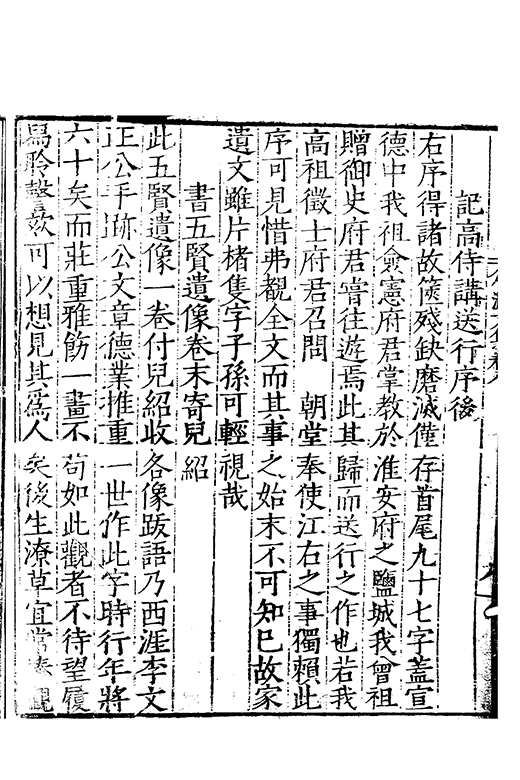 記高侍講送行序後
右序得諸故篋殘缺磨滅僅存首尾九十七字蓋宣
德中我祖僉憲府君掌教於淮安府之鹽城我曾祖
贈御史府君嘗往遊焉此其歸而送行之作也若我
高祖徵士府君召問　朝堂奉使江右之事獨賴此
序可見惜弗覩全文而其事之始末不可知已故家
遺文雖片楮隻字子孫可輕視哉
書五賢遺像卷末寄兒紹
此五賢遺像一卷付兒紹收各像跋語乃西涯李文
正公手跡公文章德業推重一世作此字時行年將
六十矣而莊重雅飭一畫不苟如此觀者不待望履
舄聆謦欬可以想見其爲人矣後生潦草宜常觀